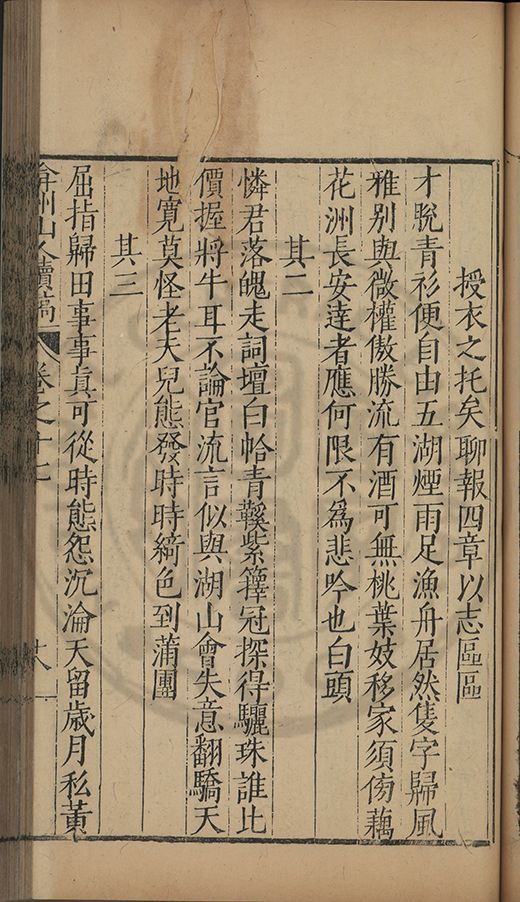 授衣之托矣聊報四章以志區區
才脫青衫便自由五湖煙雨足漁舟居然隻字歸風
雅别與微權傲勝流有酒可無桃葉妓移家須傍藕
花洲長安達者應何限不爲悲吟也白頭
其二
憐君落魄走詞壇白帢青鞵紫籜冠探得驪珠誰比
價握將牛耳不論官流言似與湖山會失意翻驕天
地寬莫怪老天兒態發時時綺色到蒲團
其三
屈指歸田事事真可從時態怨沉淪天留歲月私黄
弇州山人續稿 卷之十七